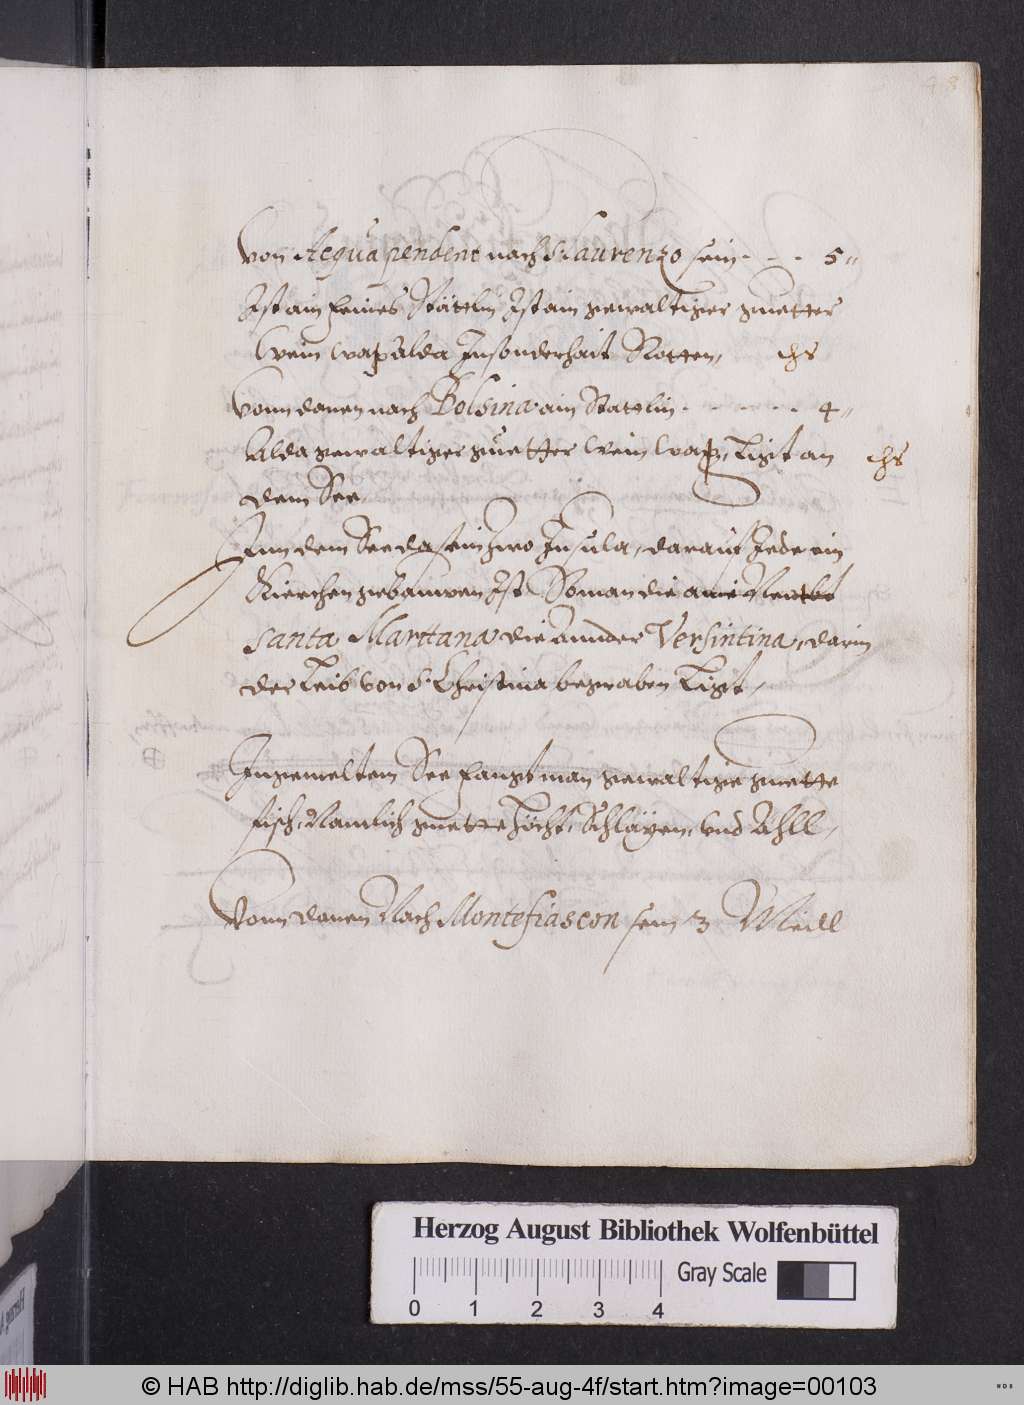 98
Von Acquapendent nach S. Laurenzo sein - - - 5 "
Ist ain feines Stättlin Ist ain gewaltiger guetter
Wein wax alda Insonderhait Rotten,
Vonn danen nach Bolsina ain Stattlin - - - - - 4 "
Alda gewaltiger guetter Wein wax, Ligt an
dem See,
Inn dem See da sein zwo Insula, darauf Jede ein
Kierchen gebauwen Ist So man die aine Nentt
Santa Marttana die annder Versintina, darin
der Leib von S. Christina begraben Ligt,
Ingemeltem See fangt man gewaltige guette
fisch, Namlich guette Höcht, Schläyen, Vnd Ähll,
Vonn danen Nach Montefiascon sein 3 Meill
Herzog August Bibliothek Wolfenbüttel
Gray Scale
0 1 2 3 4
© HAB http://diglib.hab.de/mss/55-aug-4f/start.htm?image=00103